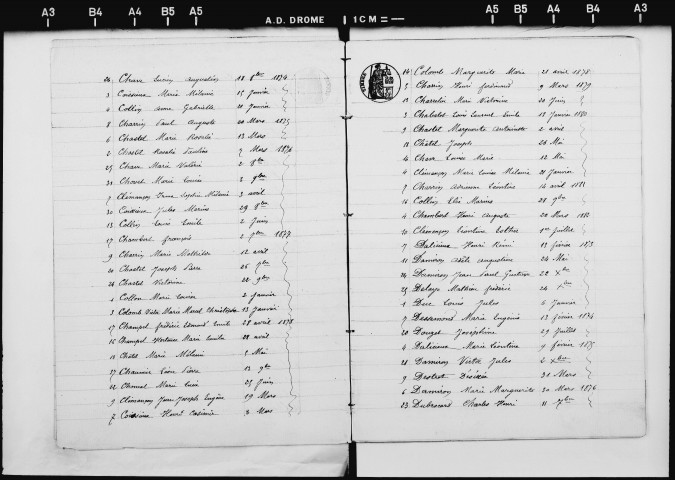 A3 B4 A4 B5 A5 A.D. DROME 1CM= A5 B5 A4 B4 A3
24 Chave Lucien Augustin 18 8bre 1874
3 Coissieux Marie Mélanie 15 Janvier
4 Collin Anne Gabrielle 20 Janvier
8 Charrin Paul Auguste 20 Mars 1875
6 Chastel Marie Rosalie 13 Mars
2 Chastel Rosalie Pauline 7 Mars 1876
25 Chave Marie Valérie 2
21 Chovet Marie Louise 3 9bre
7 Clémençon Jeanne Sophie Mélanie 3 avril
30 Jules Marius 29 9bre
13 Collin Louis Emile 2 Juin
17 Chambart François 2 1877
9 Charrin Marie Mathilde 12 avril
20 Chastel Joseph Pierre 25
26 Chastel Victorine 22 9bre
1 Collon Marie Louise 2 Janvier
3 Colomb Victor Marie Marcel Christophe 13 Janvier
17 Champel Frédéric Edmond Emile 28 avril 1878
16 Champel Hortense Marie Emilie 28 avril
18 Chatel Marie Mélanie 2 Mai
27 Chaumier Léon Pierre 13 9bre
22 Charmel Marie Lucie 25 Juin
9 Clémençon Jean Joseph Eugène 19 Mars
7 Coissieux Henri Casimir 3 Mars
TIMBRE
14 Colomb Marguerite Marie 21 avril 1878
5 Charrin Henri Ferdinand 9 Mars 1879
18 Marie Victorine 20 Juin
3 Chabalet Louis Laurent Emile 13 Janvier 1880
9 Chastel Marguerite Antoinette 2 avril
13 Chatel Joseph 26 Mai
14 Chave Louise Marie 12 Mai
4 Clémençon Marie Louise Mélanie 21 Janvier
7 Charrin Adrienne Léontine 14 avril 1881
16 Collin Elie Marius 28 9bre
4 Chambart Henri Auguste 20 Mars 1882
10 Clémençon Léontine Esther 1er Juillet
7 Dalicieux Henri Rémi 13 février 1873
11 Damiron Adèle Augustine 24 Mai
24 Damiron Jean Paul 22 Xbre
25 Delaye Mathieu Frédéric 26 Xbre
1 Duc Louis Jules 6 Janvier
7 Dessemond Marie Eugénie 13 février 1874
20 Douzet Joséphine 29 Juillet
4 Dalicieux Marie Léontine 9 février 1875
28 Damiron Jules 2 Xbre
9 Désirée 31 Mars
6 Damiron Marie Marguerite 20 Mars 1876
23 Charles Henri 11 7bre